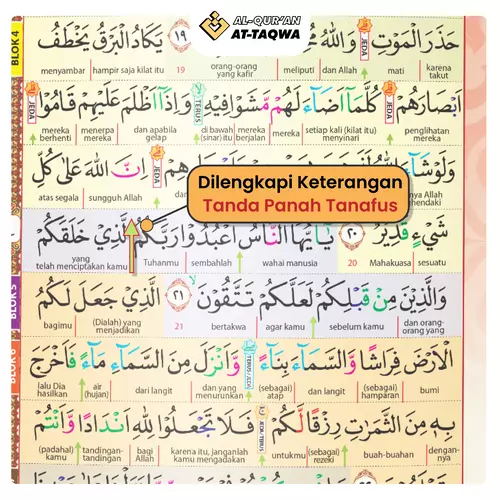 AL-QUR'AN
AT-TAQWA
BLOK 4
حَذَرَ الْمَوْتِ وَاللّٰهُ ١٩ يَكَادُ الْبَرْقُ يَخْطَفُ
karena takut mati dan Allah meliputi orang-orang yang kafir 19 hampir saja kilat itu menyambar
اَبْصَارَهُمْ كُلَّمَآ اَضَآءَ لَهُمْ مَّشَوْا فِيْهِ وَاِذَآ اَظْلَمَ عَلَيْهِمْ قَامُوْا
JEDA TERUS JEDA
penglihatan mereka setiap kali (kilat itu) menyinari mereka mereka berjalan di bawah (sinar) itu dan apabila gelap menerpa mereka mereka berhenti
وَلَوْ شَآءَ اِنَّ اللّٰهَ عَلٰى كُلِّ
JEDA
sungguh Allah atas segala
Dilengkapi Keterangan
Tanda Panah Tanafus
شَيْءٍ قَدِيْرٌ ٢٠ يٰٓاَيُّهَا النَّاسُ اعْبُدُوْا رَبَّكُمُ الَّذِيْ خَلَقَكُمْ
sesuatu Mahakuasa 20 wahai manusia sembahlah Tuhanmu yang telah menciptakan kamu
BLOK 5
وَالَّذِيْنَ مِنْ قَبْلِكُمْ لَعَلَّكُمْ تَتَّقُوْنَ ٢١ الَّذِيْ جَعَلَ لَكُمُ
dan orang-orang yang sebelum kamu agar kamu bertakwa 21 (Dialah) yang menjadikan bagimu
BLOK 6
الْاَرْضَ فِرَاشًا وَّالسَّمَآءَ بِنَآءً وَّاَنْزَلَ مِنَ السَّمَآءِ مَآءً فَاَخْرَجَ
TERUS JEDA
bumi (sebagai) hamparan dan langit (sebagai) atap dan yang menurunkan dari langit air (hujan) lalu Dia hasilkan
بِهٖ مِنَ الثَّمَرٰتِ رِزْقًا لَّكُمْ فَلَا تَجْعَلُوْا لِلّٰهِ اَنْدَادًا وَّاَنْتُمْ
JEDA TERUS
dengan-nya buah-buahan (sebagai) rezeki untukmu karena itu, janganlah kamu mengadakan bagi Allah tandingan-tandingan (padahal) kamu